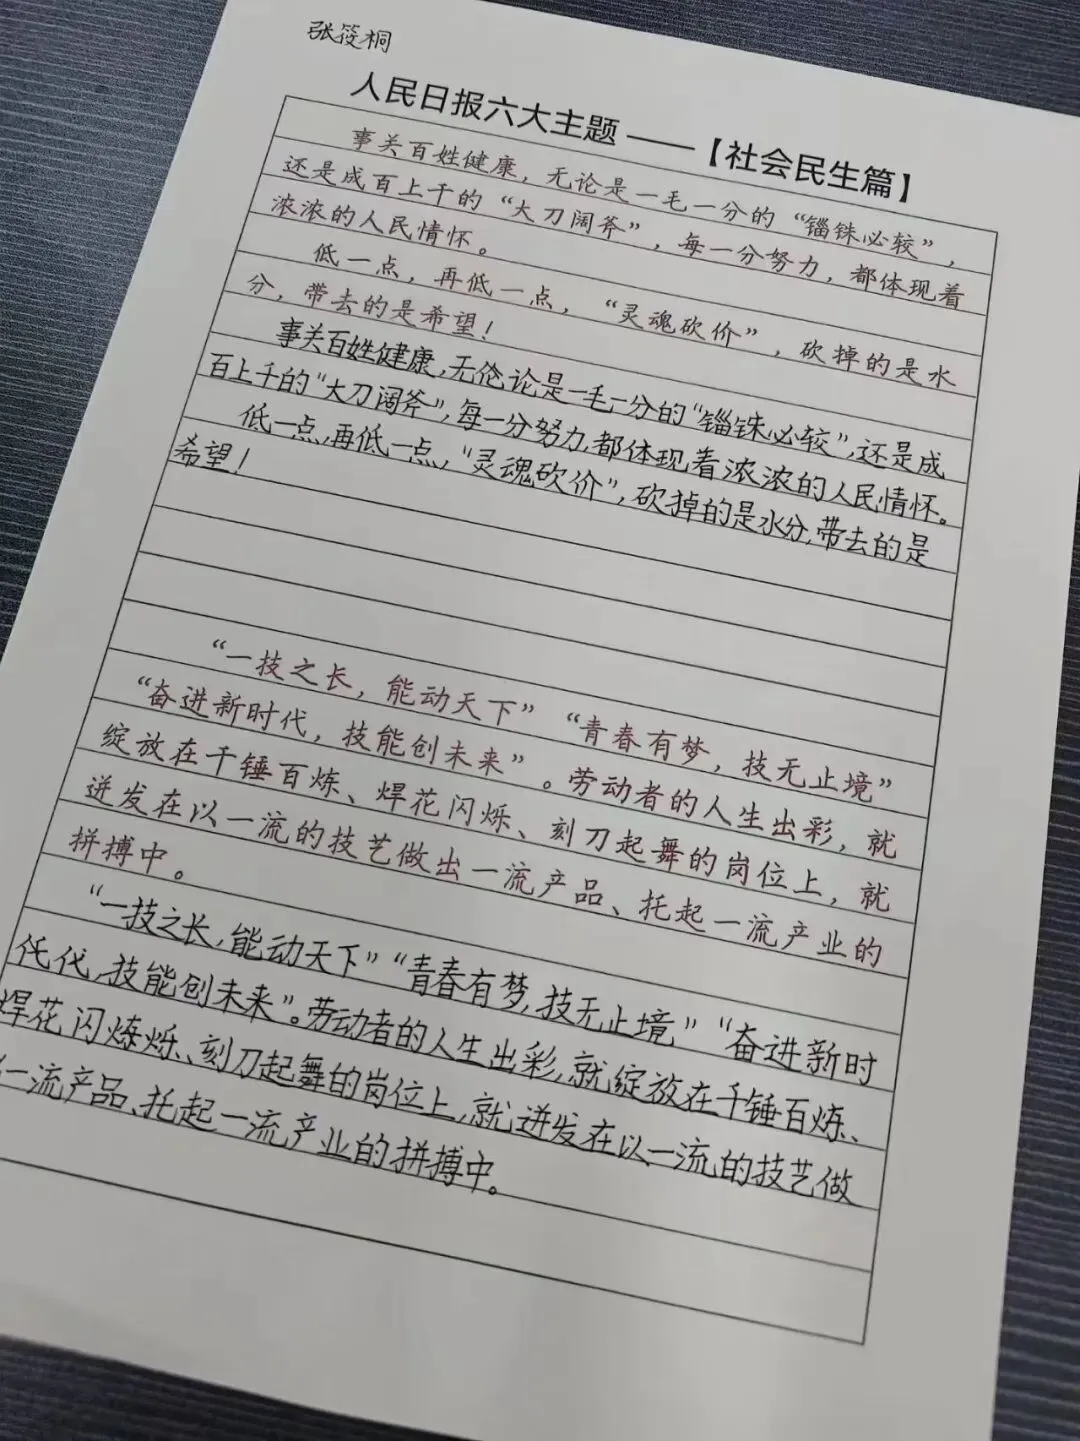 张筱桐
人民日报六大主题——【社会民生篇】
事关百姓健康，无论是一毛一分的“锱铢必较”，
还是成百上千的“大刀阔斧”，每一分努力，都体现着
浓浓的人民情怀。
低一点，再低一点，“灵魂砍价”，砍掉的是水
分，带去的是希望！
事关百姓健康,无伦论是一毛一分的“锱铢必较”,还是成
百上千的“大刀阔斧”,每一分努力,都体现着浓浓的人民情怀。
低一点,再低一点,“灵魂砍价”,砍掉的是水分,带去的是
希望！
“一技之长，能动天下”“青春有梦，技无止境”
“奋进新时代，技能创未来”。劳动者的人生出彩，就
绽放在千锤百炼、焊花闪烁、刻刀起舞的岗位上，就
迸发在以一流的技艺做出一流产品、托起一流产业的
拼搏中。
“一技之长,能动天下”“青春有梦,技无止境”“奋进新时
代,技能创未来”。劳动者的人生出彩,就绽放在千锤百炼、
焊花闪炼烁、刻刀起舞的岗位上,就迸发在以一流的技艺做
一流产品、托起一流产业的拼搏中。